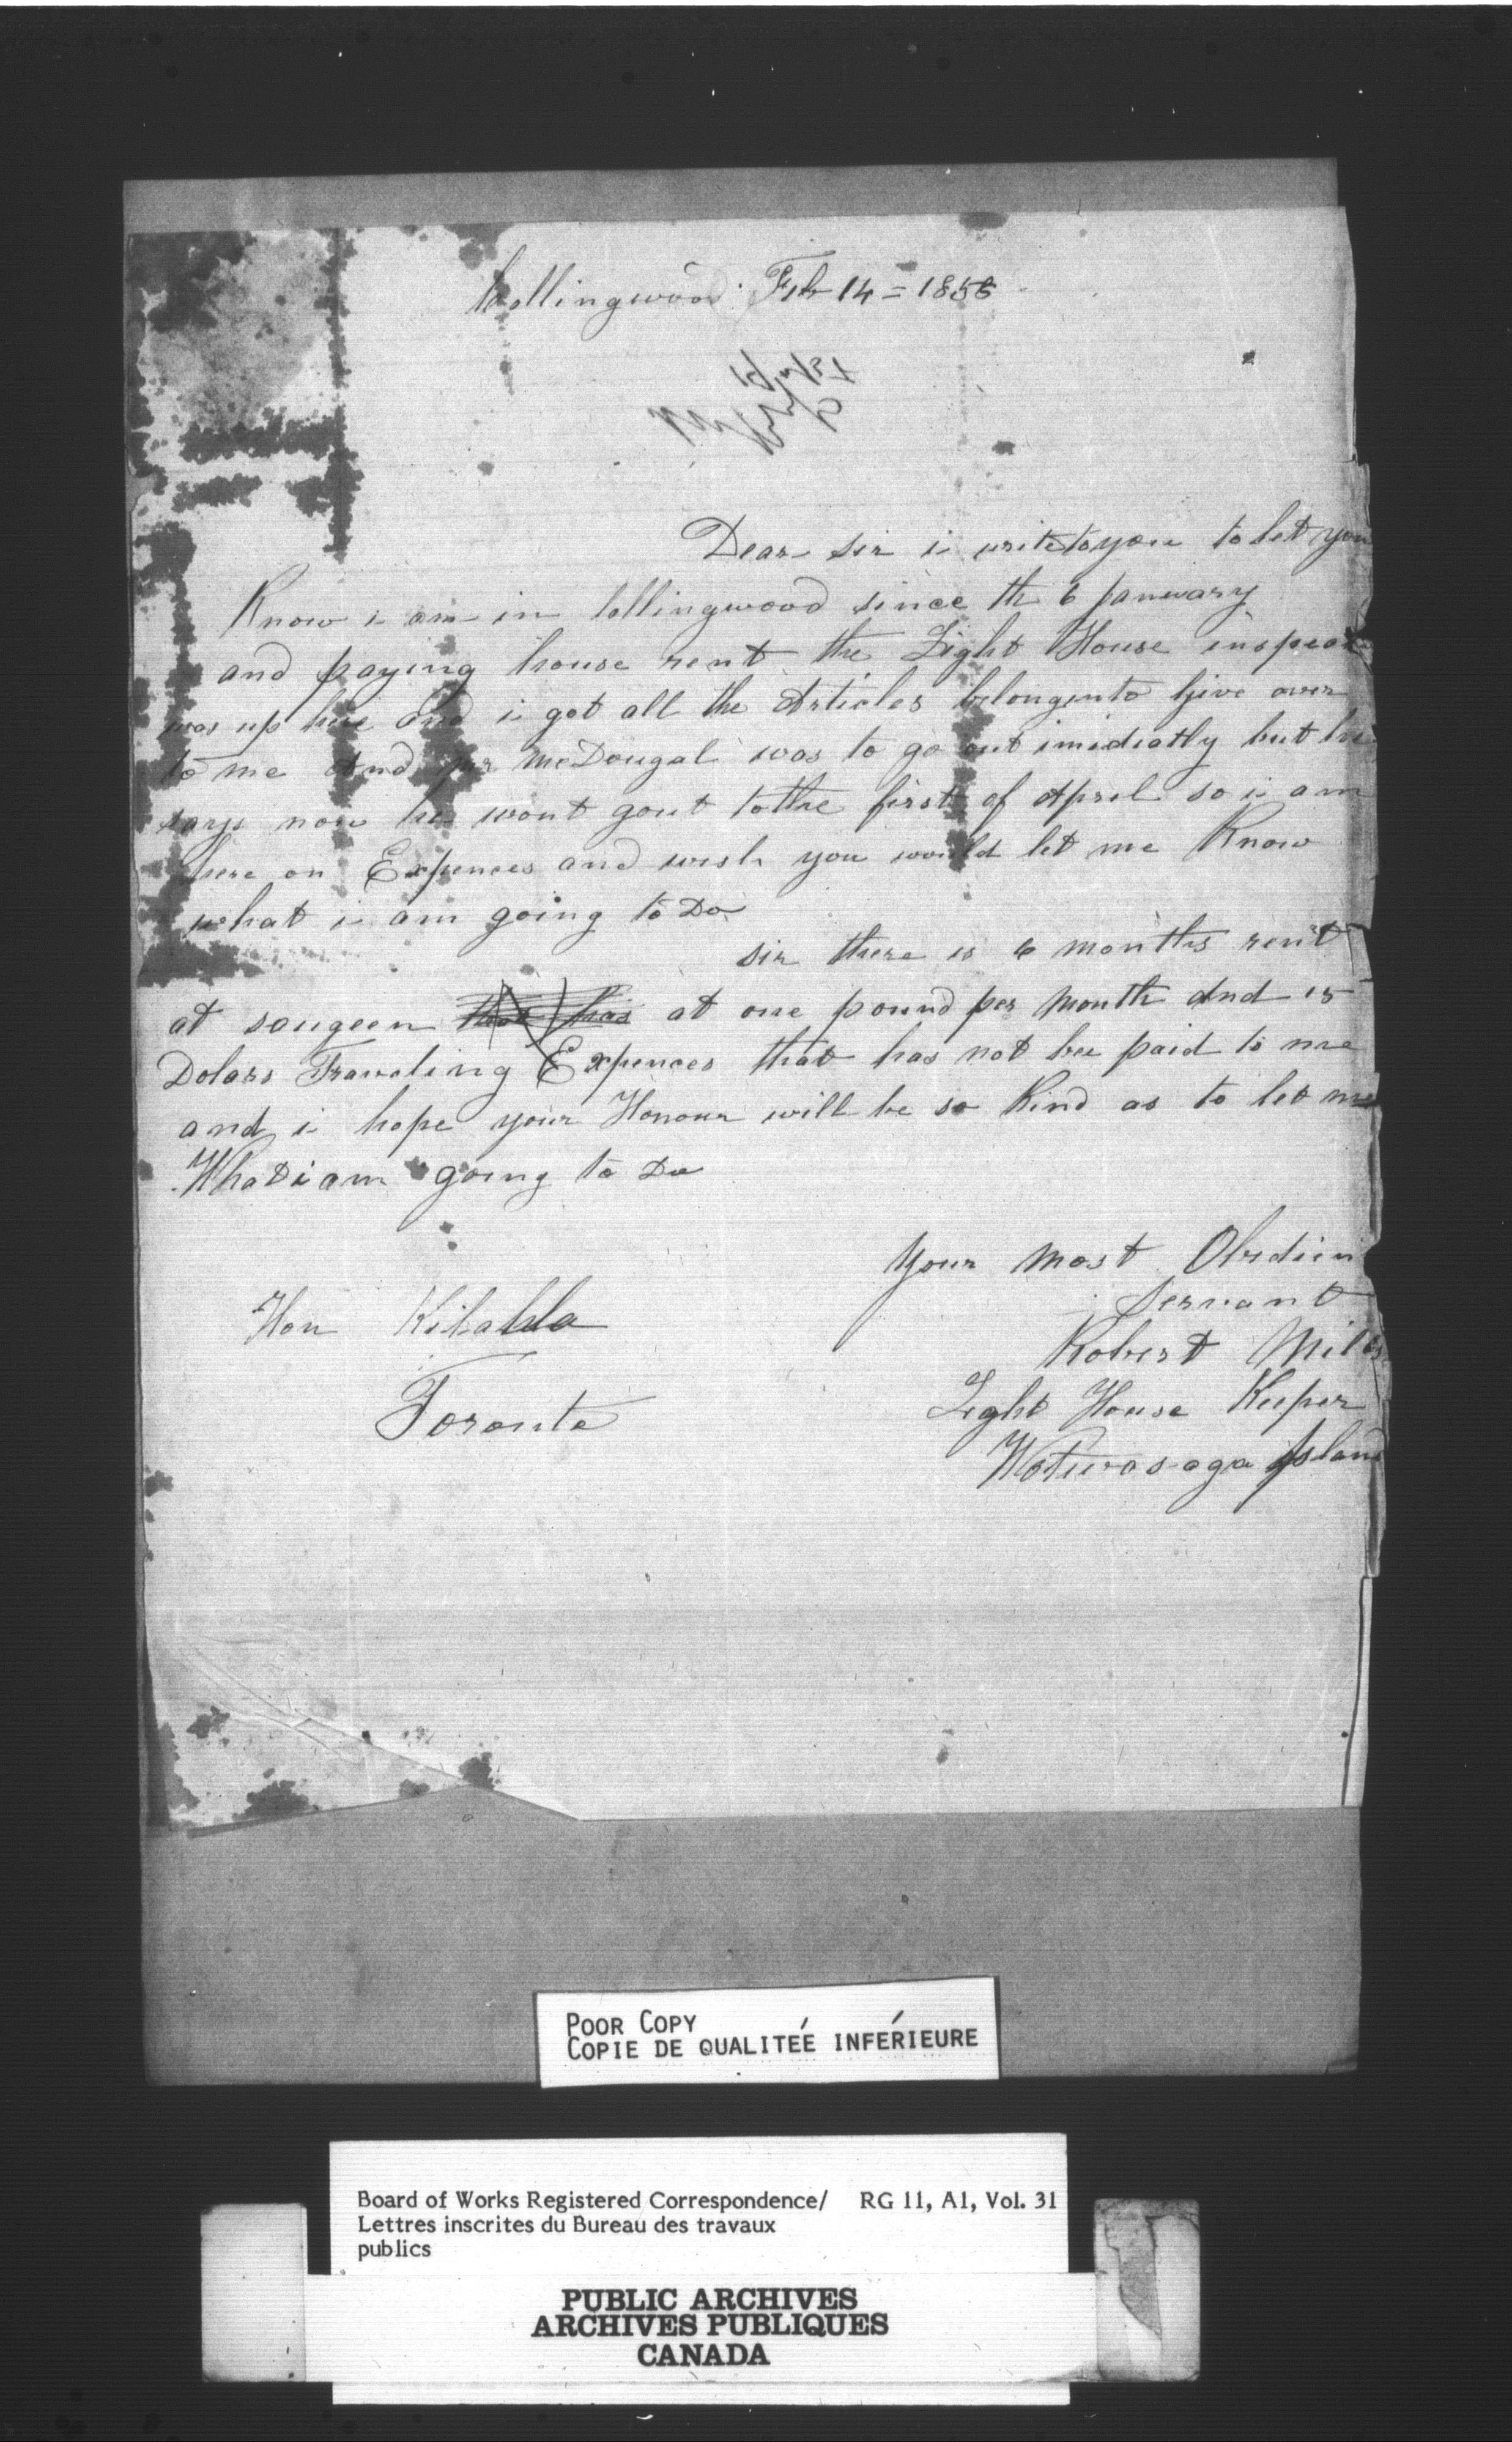 Collingwood Feb 14 = 1856
Dear sir i write to you to let you
Know i am in Collingwood since th 6 January
and paying house rent the Light House inspect
was up here and i got all the Articles belongento Give over
to me And mr McDougal was to go out imidiatly but he
says now he wont gout tothe first of April so i am
here on Expences and wish you would let me Know
what i am going to Do
sir there is 6 months rent
at sougeen at one pound per Month And 15
Dolars Traveling Expences that has not bee paid to me
and i hope your Honour will be so Kind as to let me
What i am going to Do
Your Most Obedien
Servant
Robert Mills
Light House Keeper
Notwasaga Island
Hon Kilalda
Toronto
POOR COPY
COPIE DE QUALITEÉ INFÉRIEURE
Board of Works Registered Correspondence/ RG 11, A1, Vol. 31
Lettres inscrites du Bureau des travaux
publics
PUBLIC ARCHIVES
ARCHIVES PUBLIQUES
CANADA